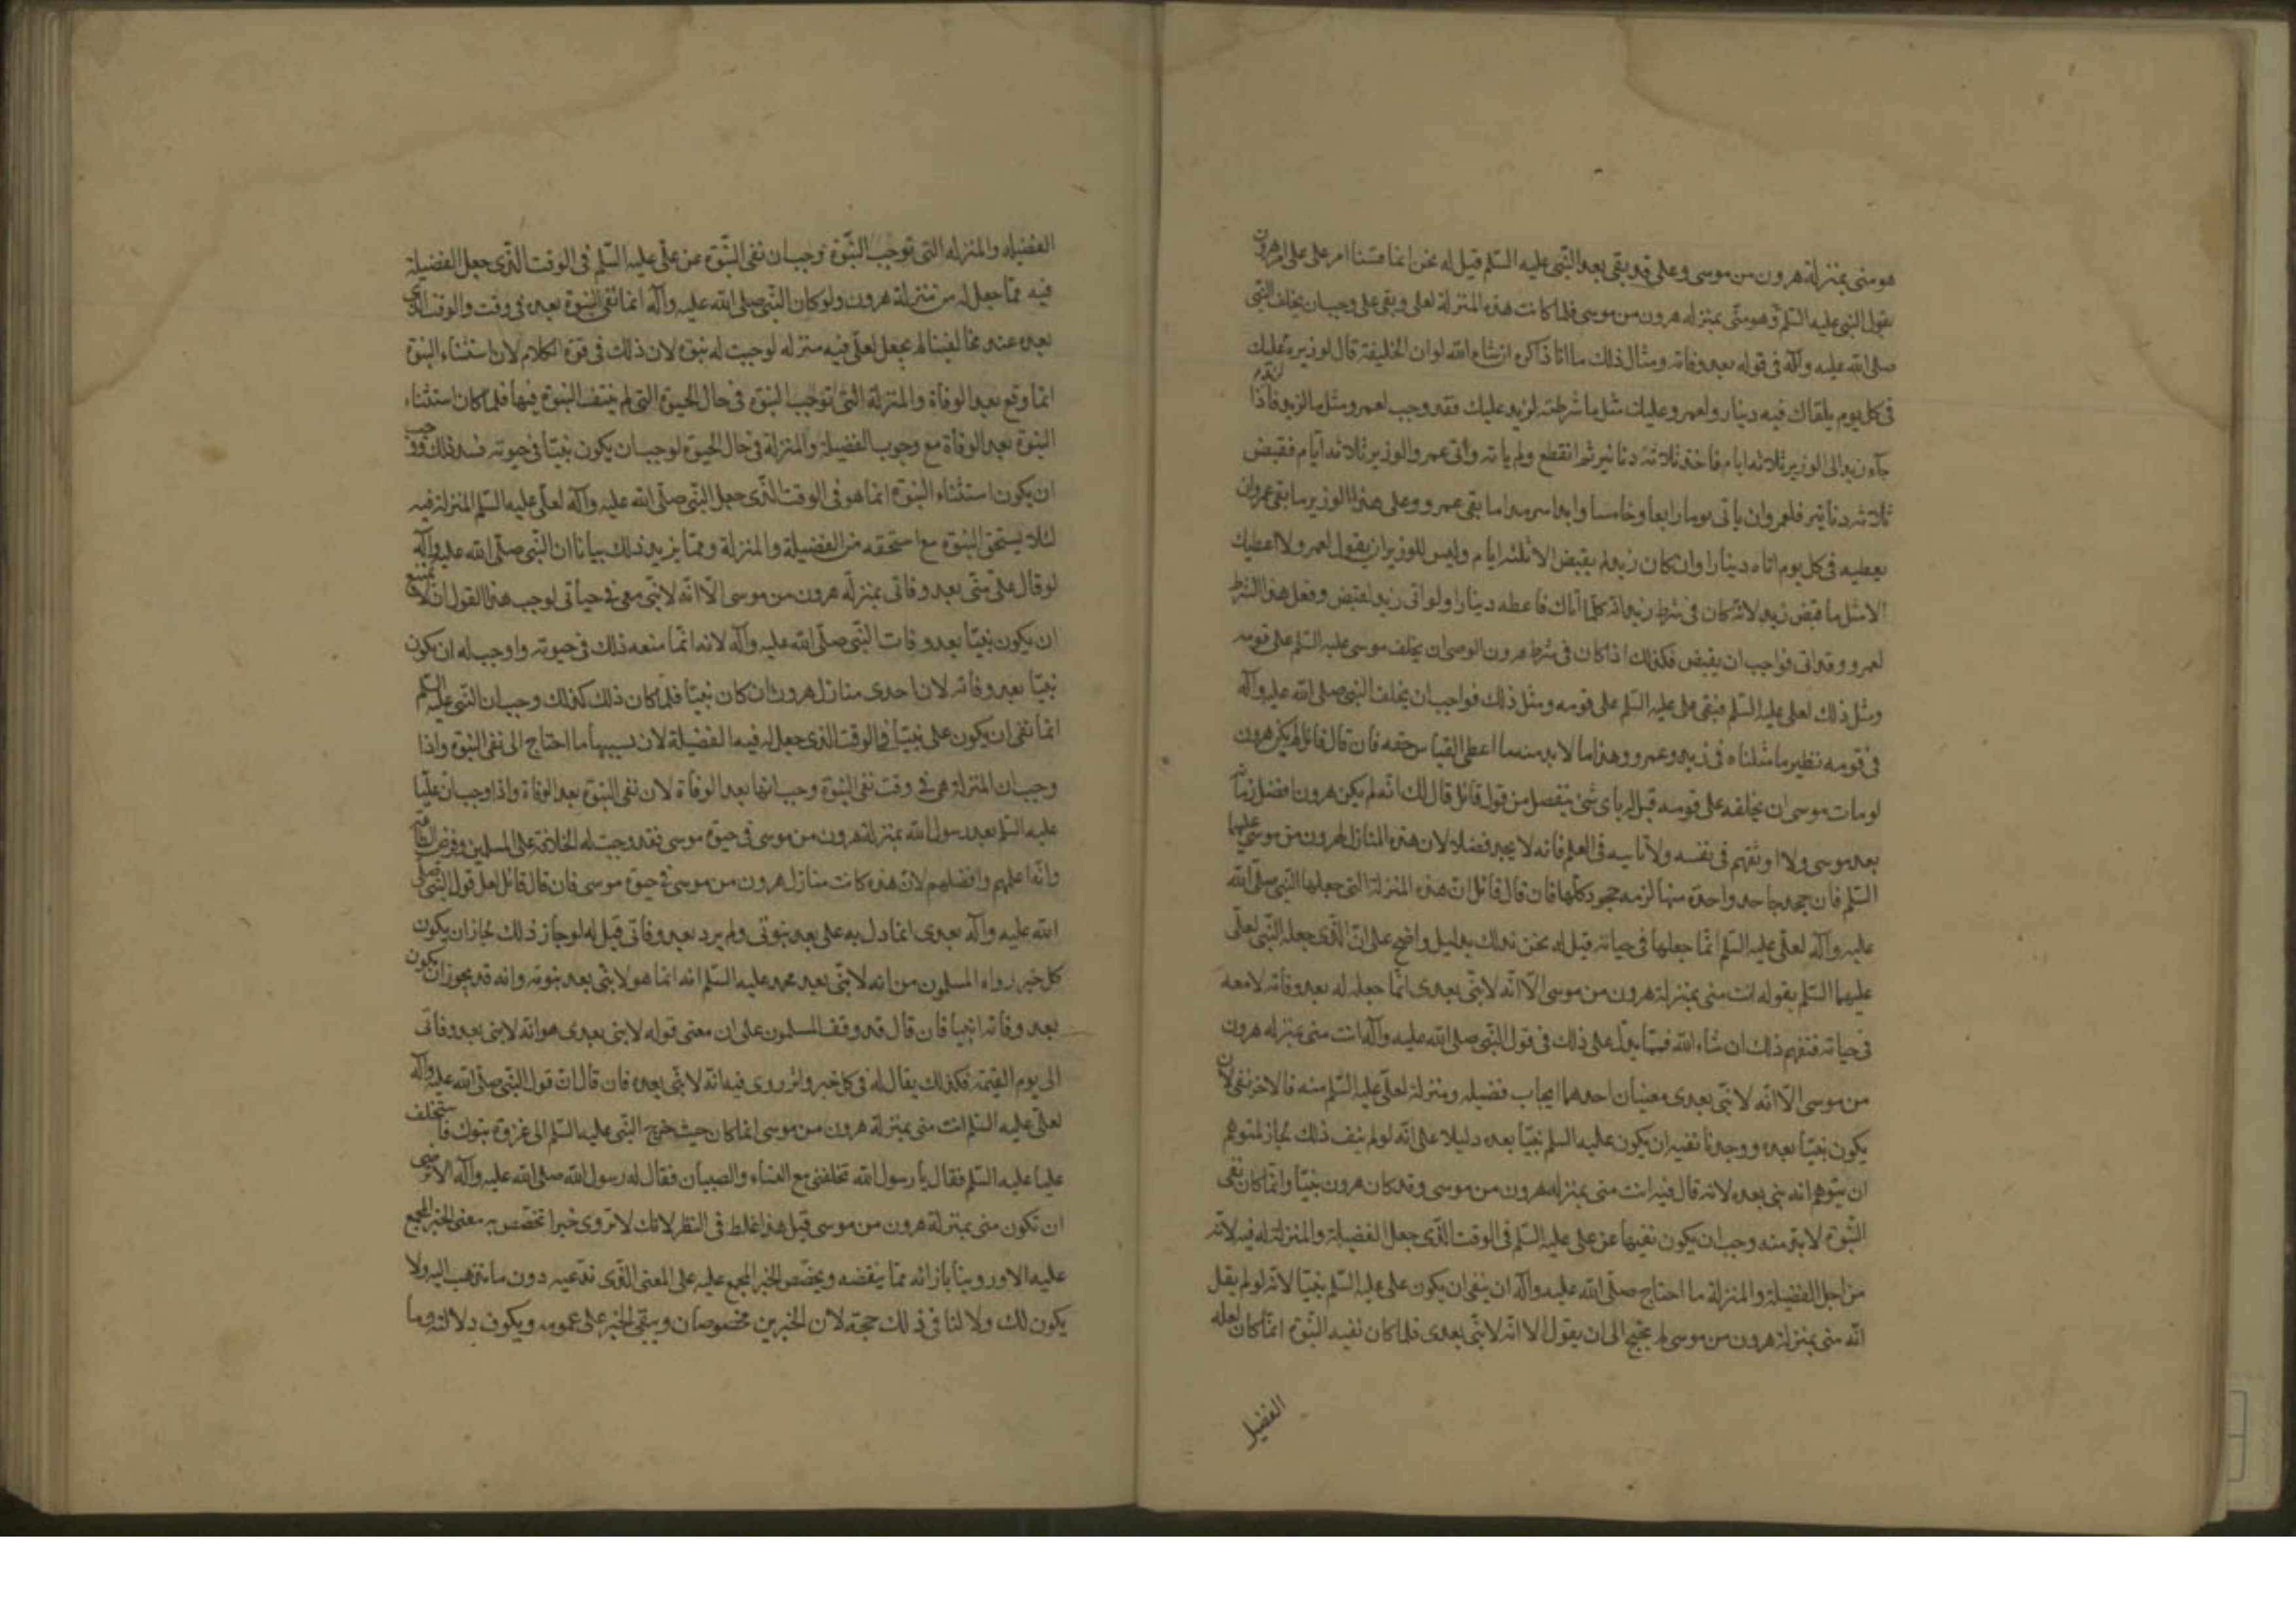 هو منى بمنزلة هرون من موسى وعلى قد بقى بعد النبى عليه السّلم قيل له نحن انما قسنا امر على على امر هرون
بقول النبى عليه السّلم وهو منّى بمنزله هرون من موسى فلما كانت هذه المنزلة لعلى وبقى على وجب ان يخلف النبى
صلى الله عليه وآله فى قوله بعد وفاته ومثال ذلك ما انا ذاكره ان شاء الله لو ان الخليفة قال لوزيره لزيد عليك
فى كل يوم يلقاك فيه دينار ولعمرو عليك مثل ما شرطته لزيد عليك فقد وجب لعمرو مثل ما لزيد فاذا
جآء زيد الى الوزير ثلاثه ايام فاخذ ثلاثة دنانير ثم انقطع ولم ياته واتى عمرو الوزير ثلاثه ايّام فقبض
ثلاثه دنانير فلعمرو ان ياتى يوما رابعا وخامسا وابدا سرمدا ما بقى عمرو وعلى هذا الوزير ما بقى عمرو ان
يعطيه فى كل يوم اتاه دينارا وان كان زيد لم يقبض الا ثلثه ايام وليس للوزير ان يقول لعمرو لا اعطيك
الا مثل ما قبض زيد لانّه كان فى شرط زيد انه كلّما اتاك فاعطه دينارا ولو اتى زيد لقبض وفعل هذا الشرط
لعمرو وقد اتى فواجب ان يقبض فكذلك اذا كان فى شرط هرون الوصى ان يخلف موسى عليه السّلم على قومه
ومثل ذلك لعلى عليه السّلم فبقى على عليه السّلم على قومه ومثل ذلك فواجب ان يخلف النبى صلى الله عليه وآله
فى قومه نظير ما مثلناه فى زيد وعمرو وهذا ما لا بد منه ما اعطى القياس حقه فان قال قائل لم يكن هرون
لو مات موسى ان يخلفه على قومه قيل له باى شئ ينفصل من قول قائل قال لك انه لم يكن هرون افضل زمانه
بعد موسى ولا اوثقهم فى نفسه ولا نايبه فى العلم فانه لا يجد فصلا لان هذه المنازل لهرون من موسى عليهما
السّلم فان جحد جاحد واحدة منها لزمه جحود كلّها فان قال قائل ان هذه المنزلة التى جعلها النبى صلّى الله
عليه وآله لعلّى عليه السّلم انّما جعلها فى حياته قيل له نحن ندلك بدليل واضح على انّ الذى جعله النّبى لعلّى
عليهما السّلم بقوله انت منى بمنزلة هرون من موسى الّا انّه لا نبّى بعدى انّما جعله له بعد وفاته لا معه
فى حياته فتفهم ذلك ان شاء الله فممّا يدلّ على ذلك فى قول النّبى صلى الله عليه وآله انت منى بمنزله هرون
من موسى الّا انّه لا نبّى بعدى معنيان احدهما ايجاب فضيله ومنزلة لعلّى عليه السّلم منه فالاخر نفى لان
يكون نبيّا بعده ووجدنا نفيه ان يكون عليه السلم نبيّا بعده دليلا على انّه لو لم ينف ذلك لجاز لمتوهم
ان يتوهم انه نبى بعده لانه قال فيه انت منى بمنزله هرون من موسى وقد كان هرون نبيّا وانّما كان نفى
النّبوة لا بدّ منه وجب ان يكون نفيها عن على عليه السّلم فى الوقت الّذى جعل الفضيلة والمنزلة له فيه لانّه
من اجل الفضيلة والمنزلة ما احتاج صلّى الله عليه وآله ان ينفى ان يكون على عليه السّلم نبيّا لانّه لو لم يقل
انّه منى بمنزلة هرون من موسى لم يحتج الى ان يقول الا انّه لا نبّى بعدى فلما كان نفيه النّبوة انّما كان لعله
الفضيل
الفضيله والمنزله التى توجب النّبوّة وجب ان نفى النّبوّة عن علّى عليه السّلم فى الوقت الّذى جعل الفضيلة
فيه ممّا جعل له من منزلة هرون ولو كان النّبى صلى الله عليه وآله انما نفى النبوّة بعده فى وقت والوقت الذى
بعده عند مخالفينا لم يجعل لعلّى فيه منزله لوجبت له نبوّة لان ذلك فى قوّة الكلام لان استثناء النبوّة
انّما وقع بعد الوفاة والمنزلة التى توجب النبوّة فى حال الحيوة التى لم ينتف النبوة فيها فلما كان استثناء
النبوّة بعد الوفاة مع وجوب الفضيلة والمنزلة فى حال الحيوة لوجب ان يكون نبيّا فى حيوته ففسد ذلك ووجب
ان يكون استثناء النبوّة انما هو فى الوقت الّذى جعل النّبى صلّى الله عليه وآله لعلّى عليه السّلم المنزلة فيه
لئلا يستحق النبوّة مع ما استحقه من الفضيلة والمنزلة وممّا يزيد ذلك بيانا ان النّبى صلّى الله عليه وآله
لو قال علّى منّى بعد وفاتى بمنزلة هرون من موسى الّا انّه لا نبّى معى فى حياتى لوجب هذا القول ان لا يمتنع
ان يكون نبيّا بعد وفات النّبى صلّى الله عليه وآله لانه انّما منعه ذلك فى حيوته واوجب له ان يكون
نبيّا بعد وفاته لان احدى منازل هرون ان كان نبيّا فلما كان ذلك كذلك وجب ان النّبى عليه السّلم
انّما نفى ان يكون على نبيّا فى الوقت الذى جعل له فيه الفضيلة لان بسببها ما احتاج الى نفى النبوّة واذا
وجب ان المنزلة هى فى وقت نفى النبوّة وجب انها بعد الوفاة لان نفى النبوّة بعد الوفاة واذا وجب انّ عليّا
عليه السّلم بعد رسول الله بمنزلة هرون من موسى فى حيوة موسى فقد وجبت له الخلافة على المسلمين وفرض الطاعة
وانّه اعلمهم وافضلهم لان هذه كانت منازل هرون من موسى فى حيوة موسى فان قال قائل لعل قول النّبى صلّى
الله عليه وآله بعدى انما دل به على بعد نبوتى ولم يرد بعد وفاتى قيل له لو جاز ذلك لجاز ان يكون
كل خبر رواه المسلمون من انه لا نبّى بعد محمد عليه السّلم انه انما هو لا نبّى بعد نبوته وانه قد يجوز ان يكون
بعد وفاته انبيا فان قال قد وقف المسلمون على ان معنى قوله لا نبى بعدى هو انه لا نبى بعد وفاتى
الى يوم القيمة فكذلك يقال له فى كل خبر واثر روى فيه انّه لا نبّى بعده فان قال ان قول النّبى صلّى الله عليه وآله
لعلّى عليه السّلم انت منى بمنزلة هرون من موسى انما كان حيث خرج النّبى عليه السّلم الى غزوة تبوك فاستخلف
عليا عليه السّلم فقال يا رسول الله تخلفنى مع النساء والصبيان فقال له رسول الله صلى الله عليه وآله الا ترضى
ان تكون منى بمنزلة هرون من موسى قيل هذا غلط فى النظر لانك لا تروى خبرا تخصّص به معنى الخبر المجمع
عليه الا وروينا بازائه ممّا ينقضه ويخصّص الخبر المجمع عليه على المعنى الّذى ندّعيه دون ما تذهب اليه ولا
يكون لك ولا لنا فى ذلك حجّة لان الخبرين مخصوصان ويبقى الخبر على عمومه ويكون دلالته وما